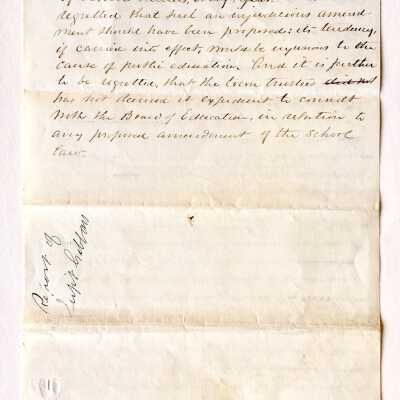 regretted that such an injudicious amend-
ment should have been proposed: its tendency,
if carried into effect, would be injurious to the
cause of public education. And it is further
to be regretted, that the Town trustees did not
has not deemed it expedient to consult
with the Board of Education, in relation to
any proposed amendment of the School
Law.
Report of
Supt Gibbons